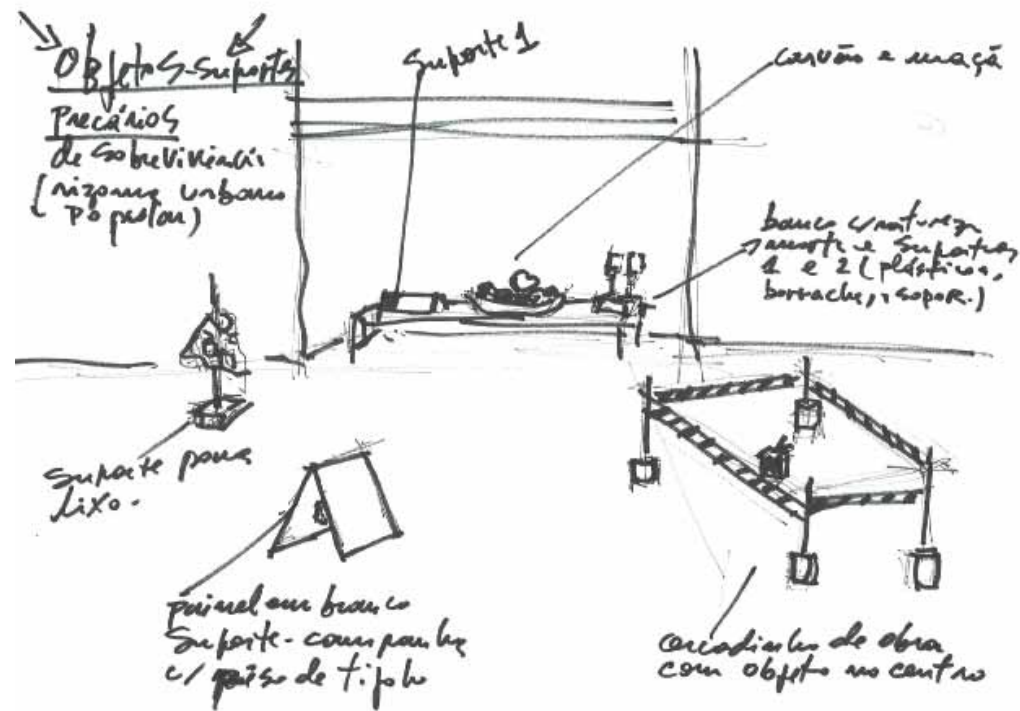 Objetos-Suportes
Precários
de sobrevivência
(rizoma urbano
popular)
Suporte 1
carvão e maçã
banco c/natureza
morta e suportes
1 e 2 (plástico,
borracha, isopor.)
Suporte para
lixo.
painel em branco
Suporte-campanha
c/ peso de tijolo
cercadinho de obra
com objeto no centro